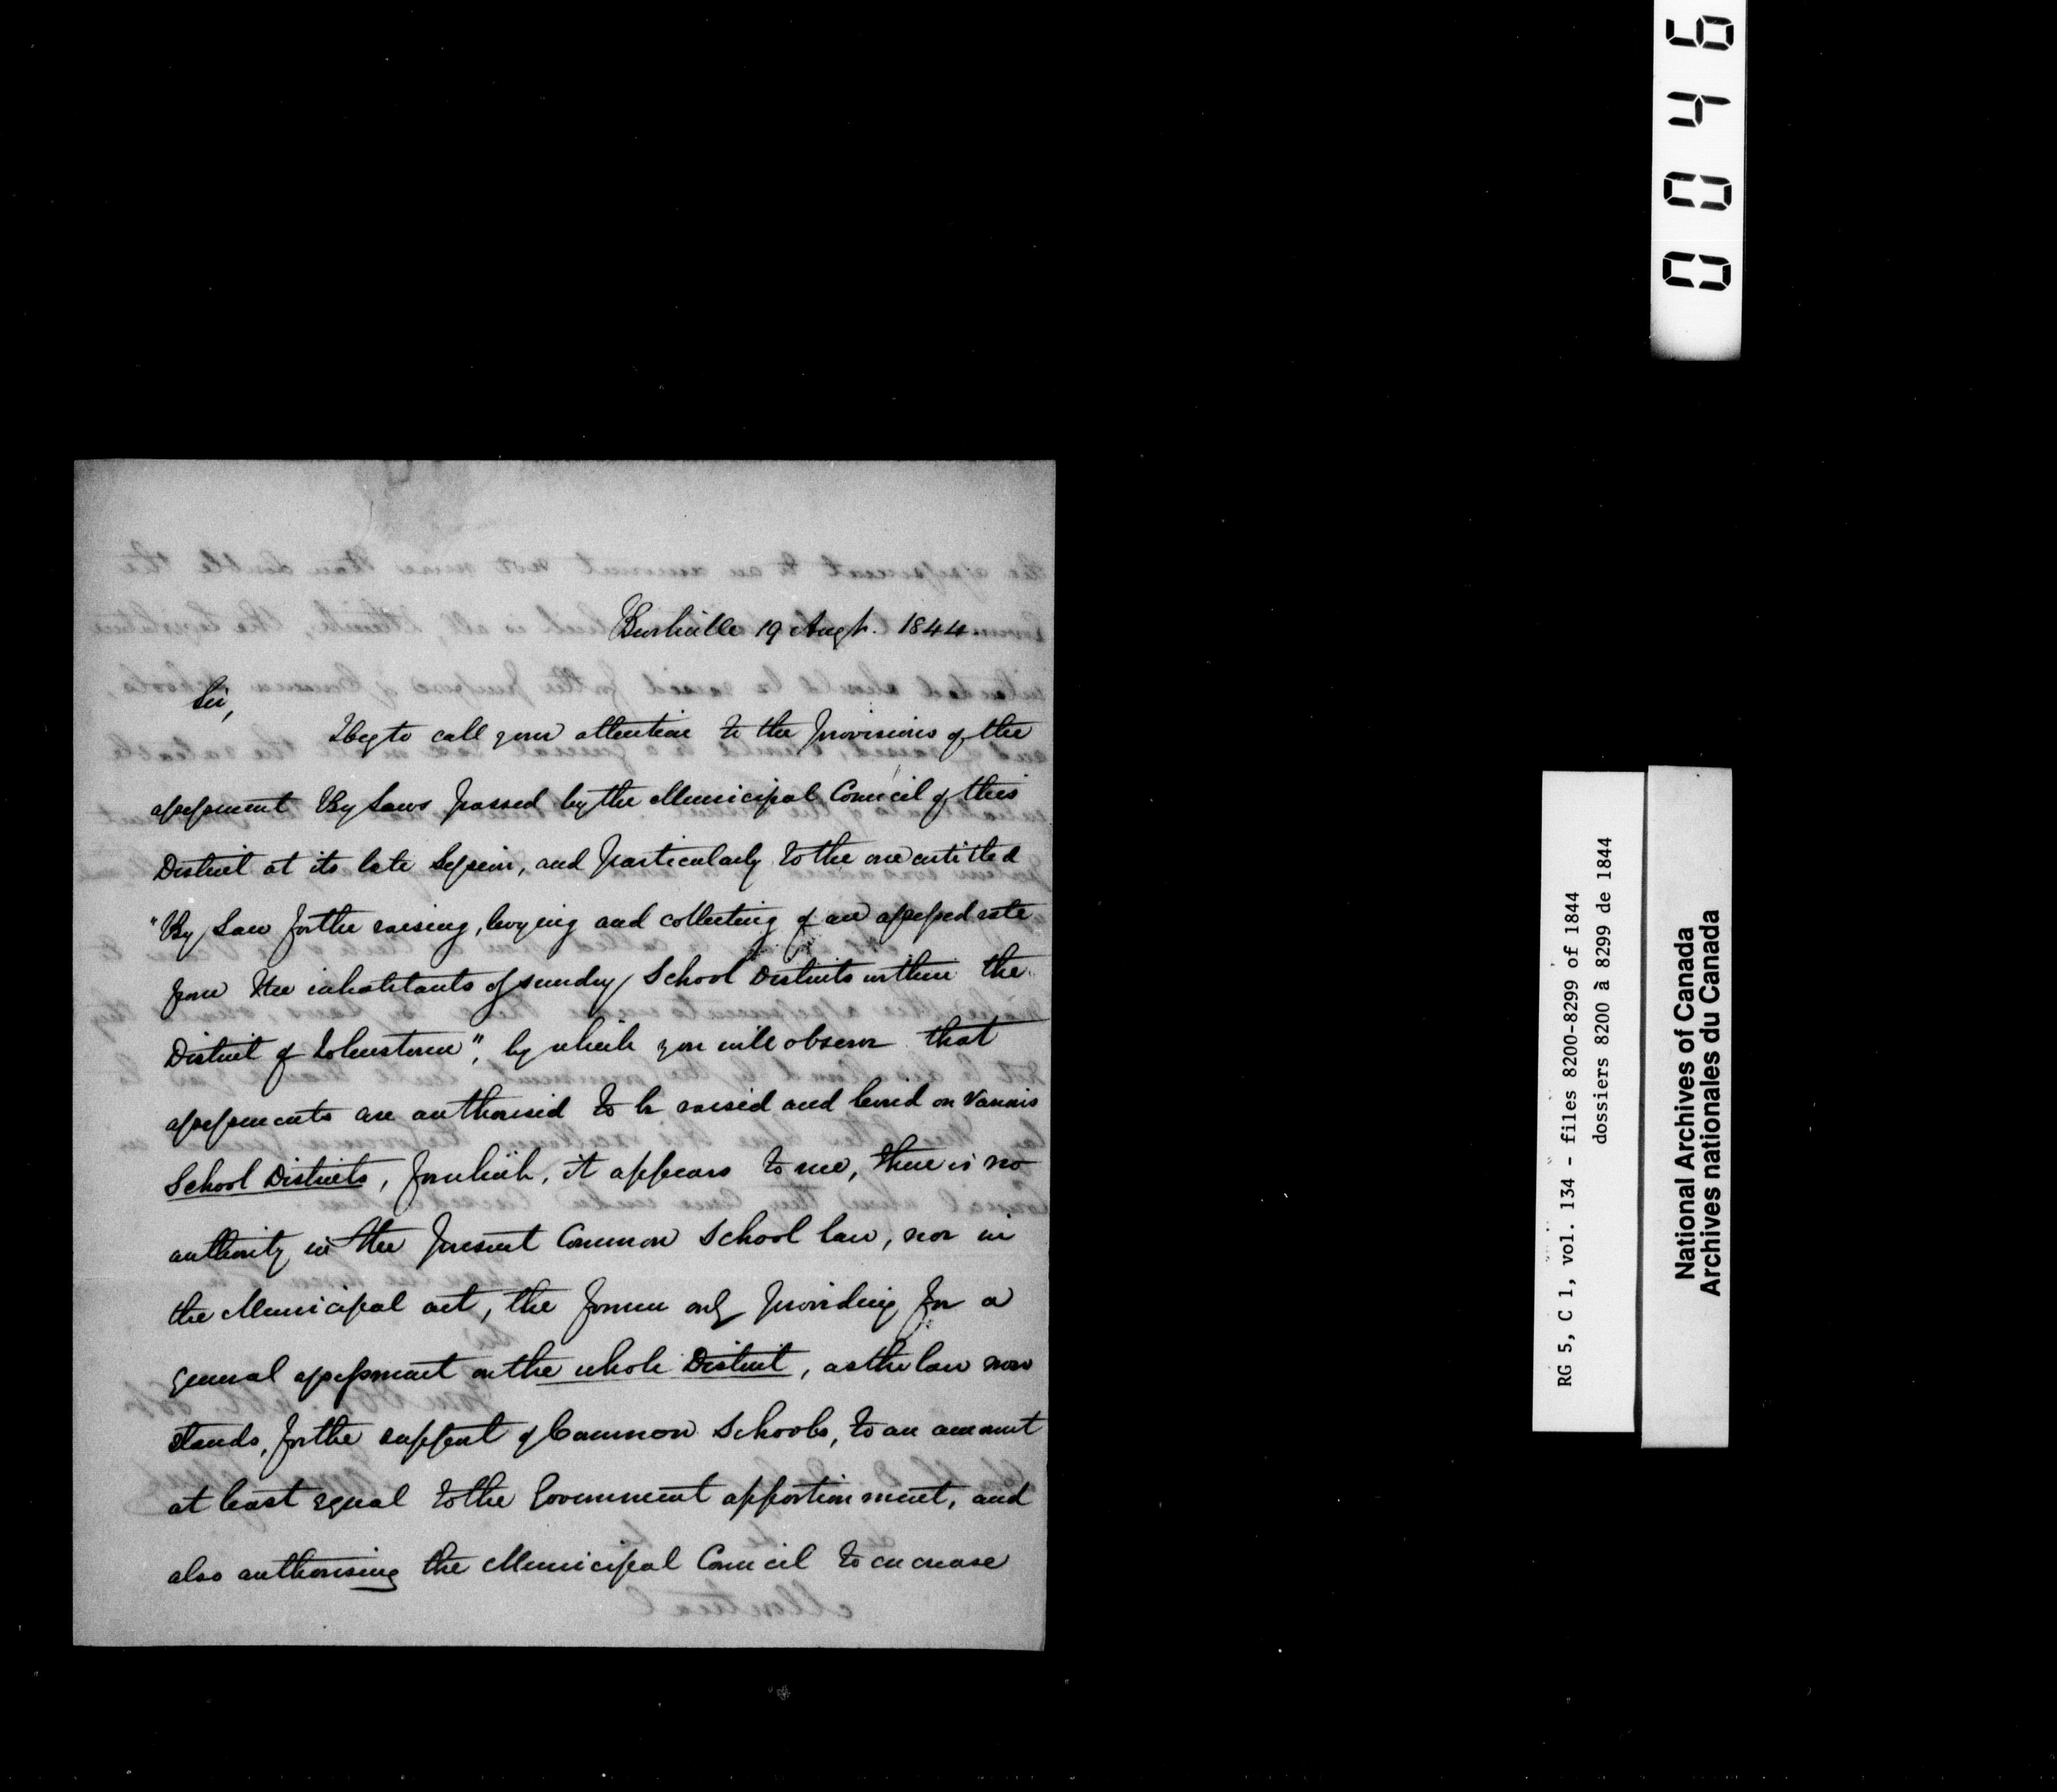 19 Augt. 1844.
Sir,
I beg to call your attention to the provisions of the
assessment By Laws passed by the Municipal Council of this
District at its late Session, and particularly to the one entitled
"By Law for the raising, levying and collecting of an assessed rate
from the inhabitants of sundry School Districts within the
District of Johnstown", by which you will observe that
assessments are authorised to be raised and levied on various
School Districts, for which, it appears to me, there is no
authority in the present Common School law, nor in
the Municipal act, the former only providing for a
general assessment on the whole District, as the law now
stands, for the support of Common Schools, to an amount
at least equal to the Government apportionment, and
also authorising the Municipal Council to encrease
0046
RG 5, C 1, vol. 134 - files 8200-8299 of 1844
dossiers 8200 à 8299 de 1844
National Archives of Canada
Archives nationales du Canada